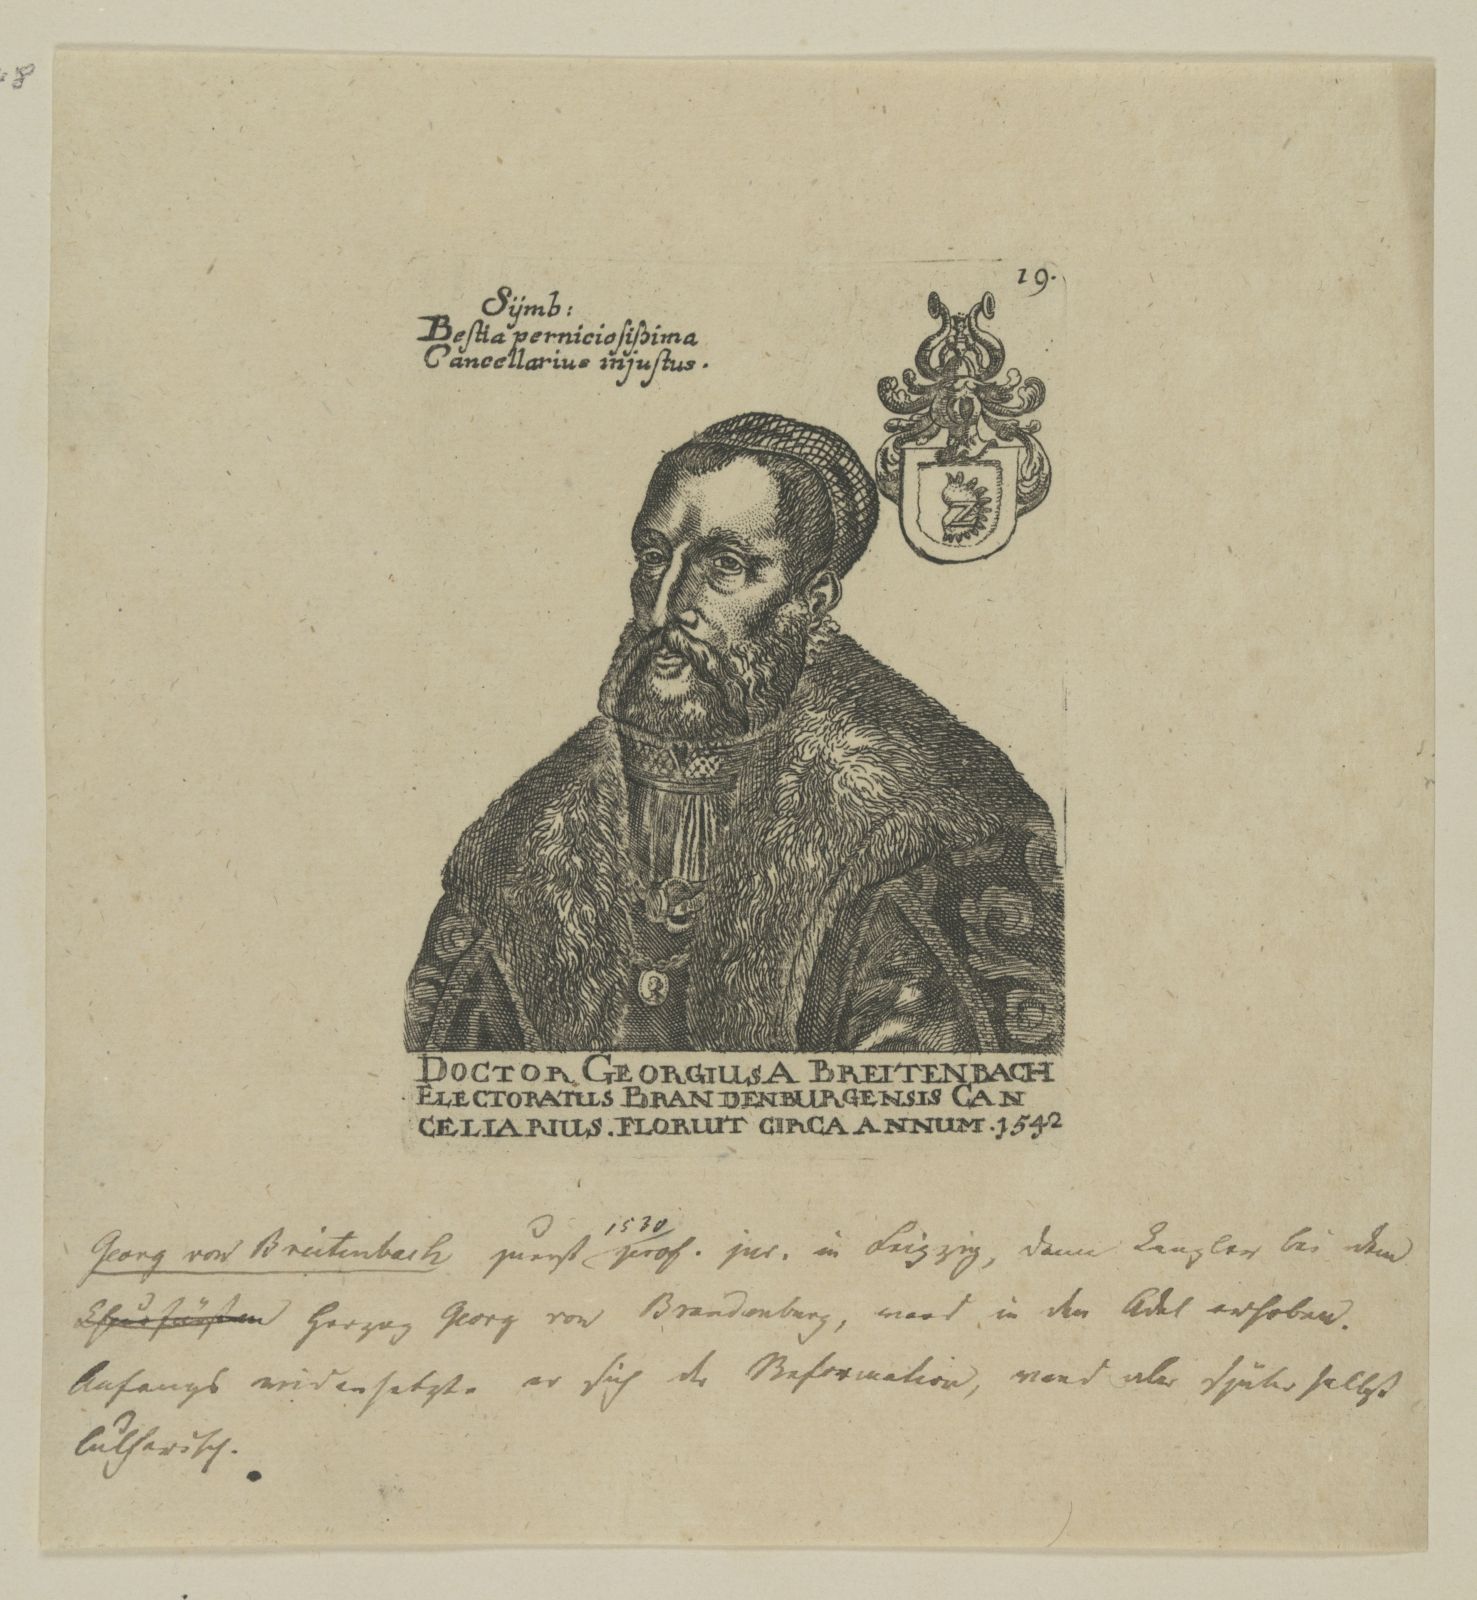 19.
Sijmb:
Bestia perniciosißima
Cancellarius injustus.
DOCTOR GEORGIUS A BREITENBACH
ELECTORATUS BRANDENBURGENSIS CAN
CELLARIUS. FLORUIT CIRCA ANNUM. 1542
1530
Georg von Breitenbach zuerst prof. jur. in Leipzig, dann Kanzler bei dem
Churfürsten Herzog Georg von Brandenburg, ward in den Adel erhoben.
Anfangs widersetzte er sich der Reformation, ward aber später selbst
lutherisch.